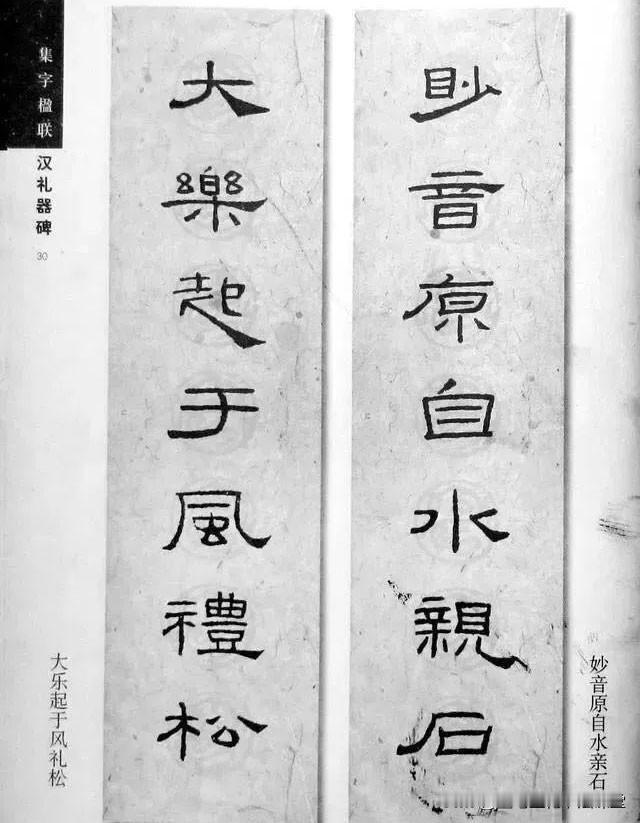 眇音原自水親石
大樂起于風禮松
妙音原自水亲石
大乐起于风礼松
集字楹联
汉礼器碑
30